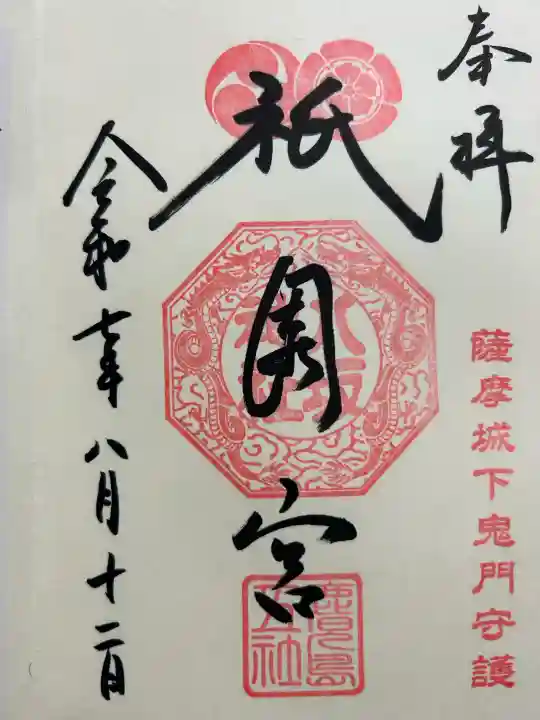 奉拝
薩摩城下鬼門守護
祇園宮
八坂
神社
鹿児島
五社
令和七年八月十二日